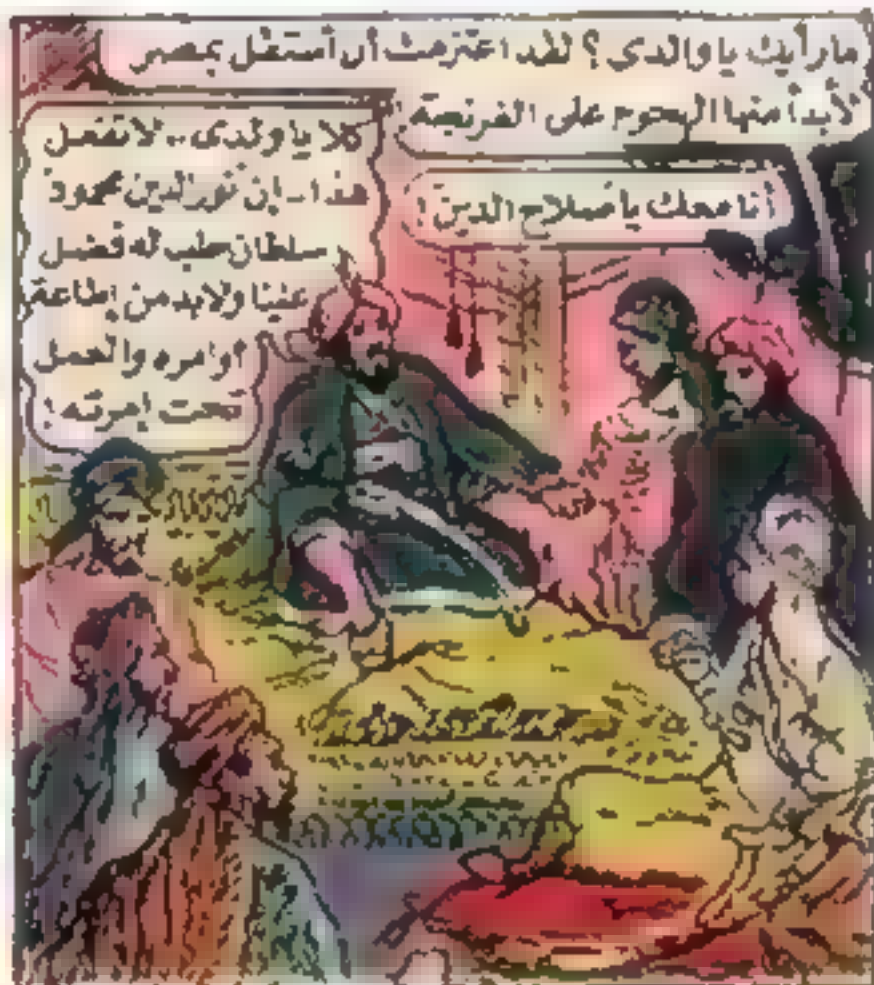 ما رأيك يا والدي ؟ لقد اعتزمت أن أستقل بمصر
لأبدأ منها الهجوم على الفرنجة !
أنا معك يا صلاح الدين !
كلا يا ولدى .. لا تفعل
هذا .. إن نور الدين محمود
سلطان حلب له فضل
علينا ولابد من إطاعة
أوامره والعمل
تحت إمرته !